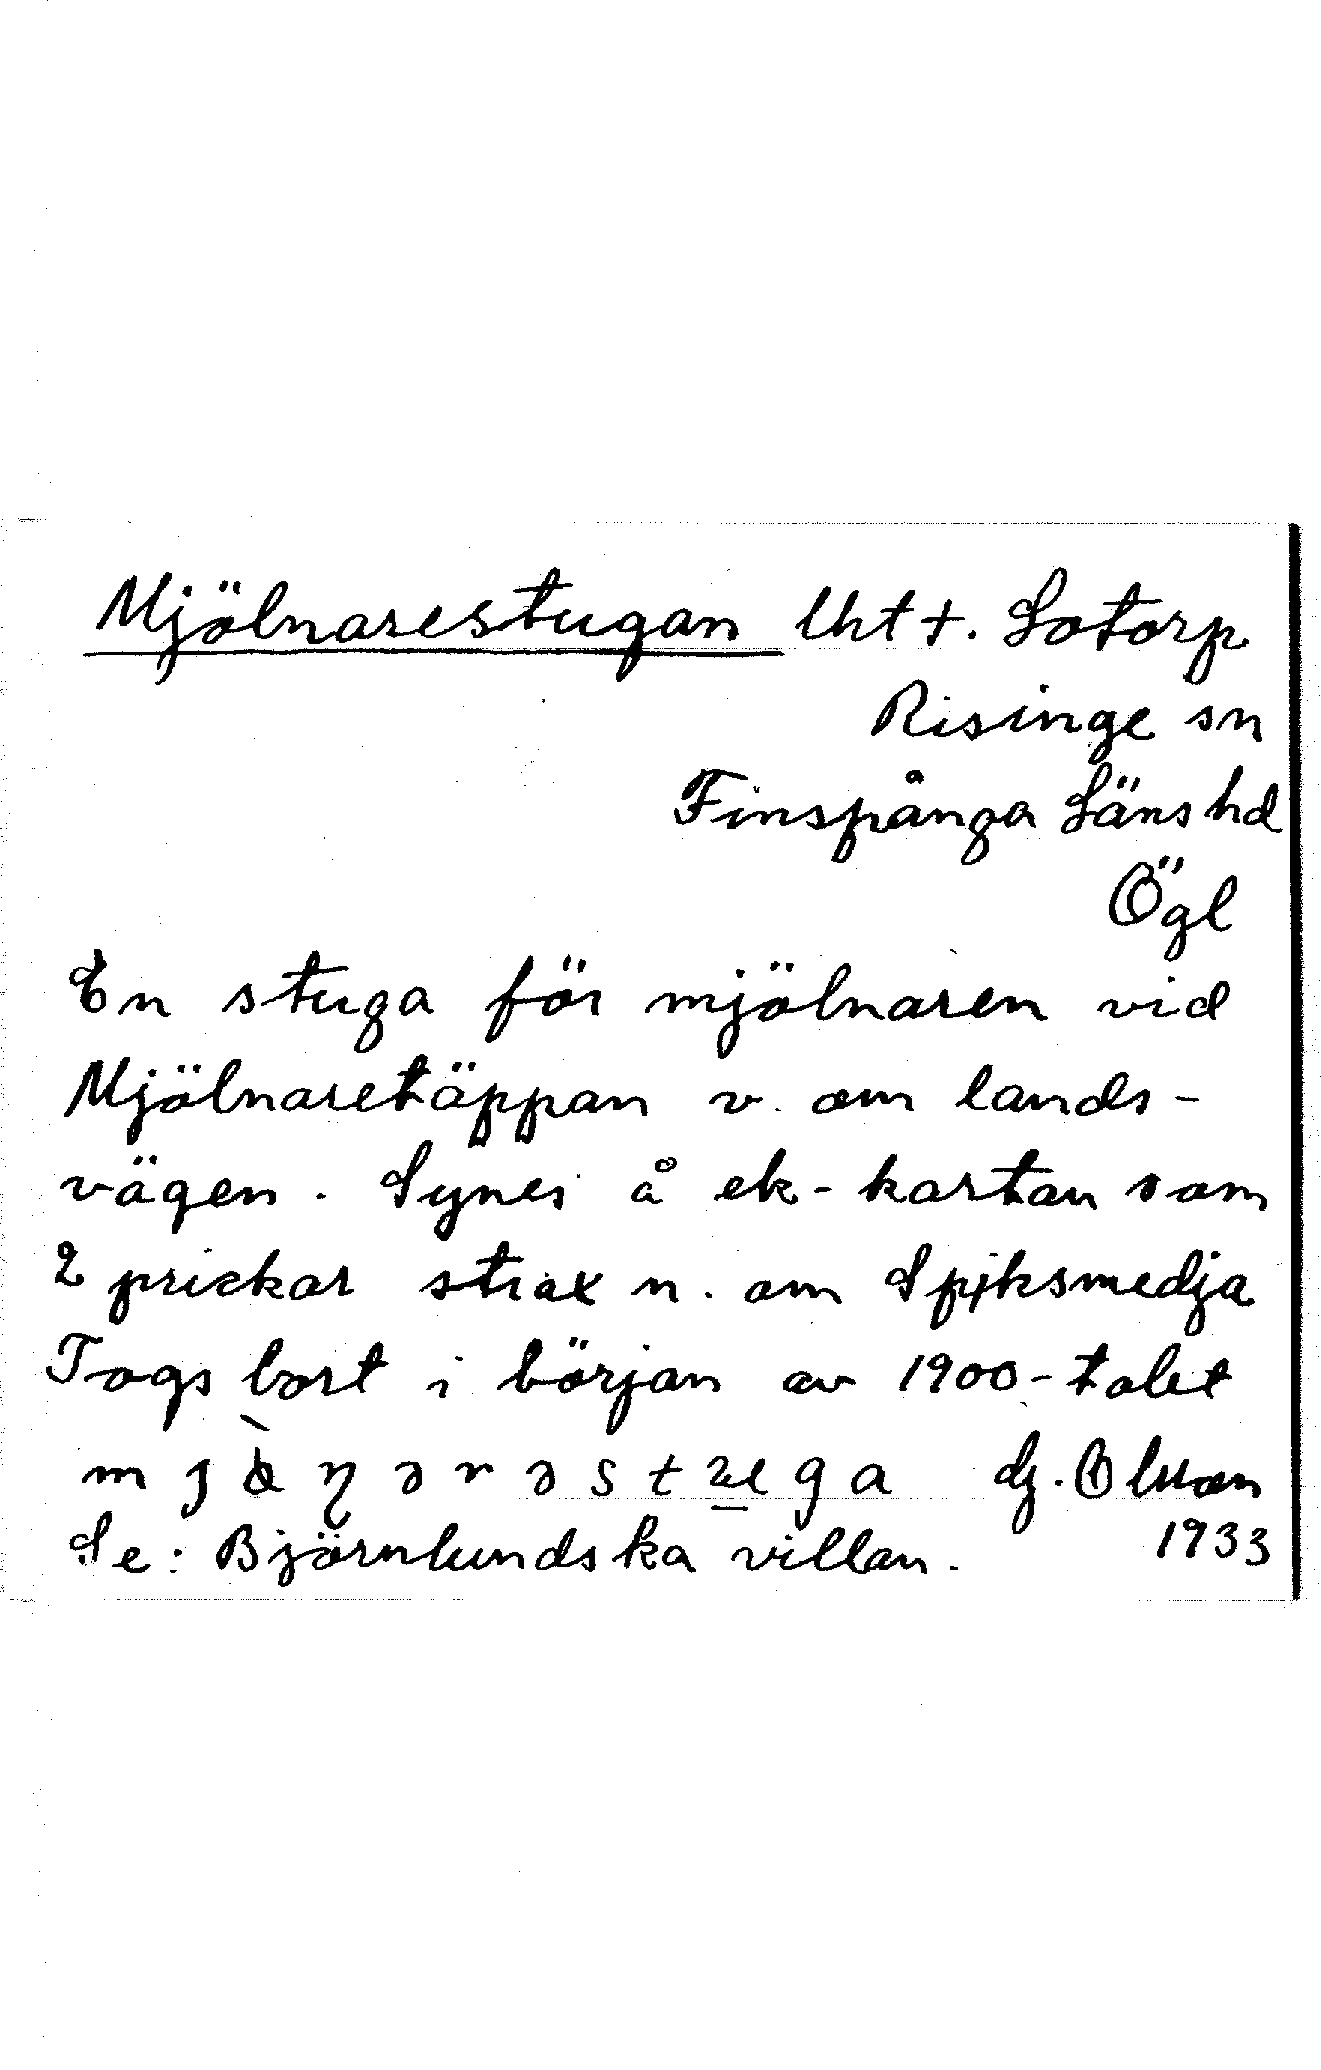 Mjölnarestugan lht †. Lotorp
Risinge sn
Finspånga Läns hd
Ögl
En stuga för mjölnaren vid
Mjölnaretäppan v. om lands-
vägen. Synes å ek-kartan som
2 prickar strax n. om Spiksmedja
Togs bort i början av 1900-talet
Se: Björnlundska villan. 1933